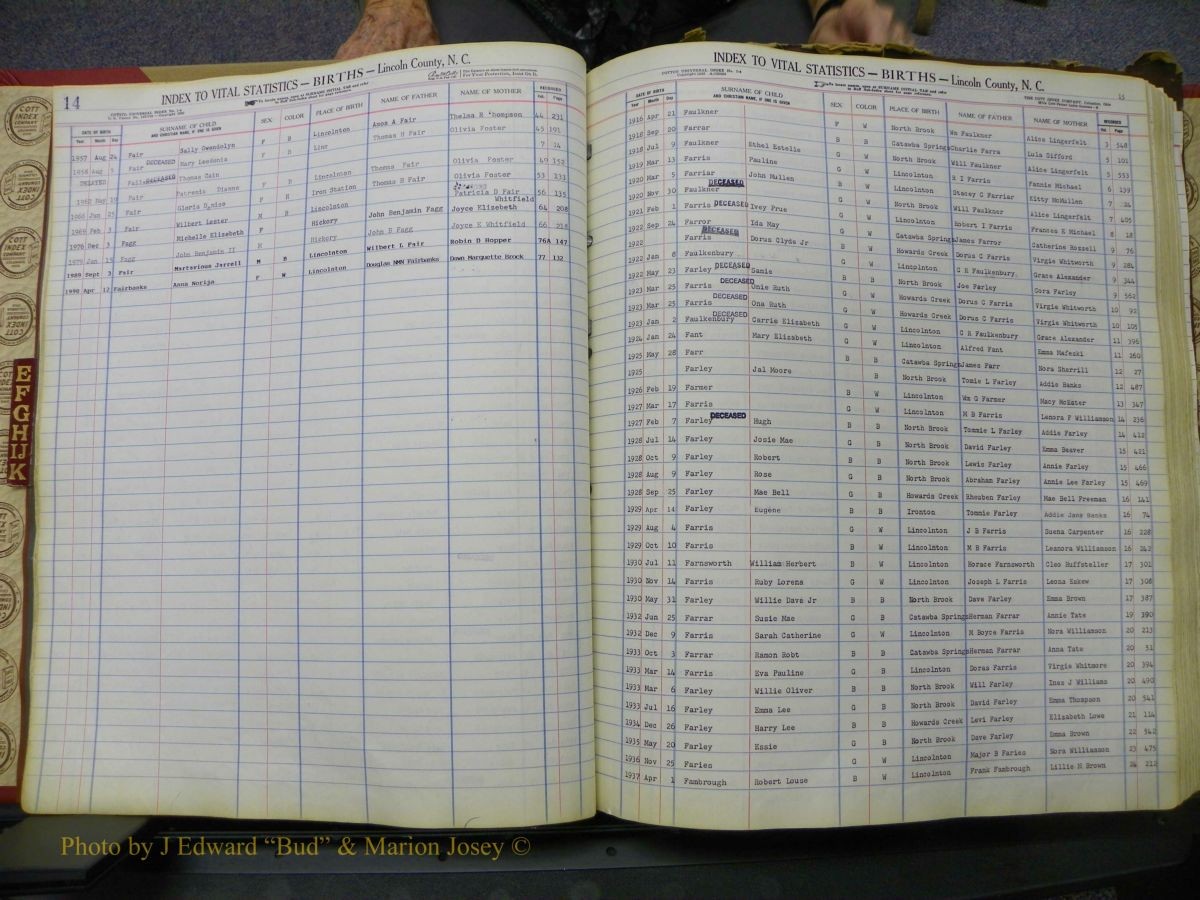 14
INDEX TO VITAL STATISTICS — BIRTHS — Lincoln County, N. C.
DATE OF BIRTH SURNAME OF CHILD SEX COLOR PLACE OF BIRTH NAME OF FATHER NAME OF MOTHER RECORDED
Year Month Day AND CHRISTIAN NAME, IF ONE IS GIVEN Vol. Page
1957 Aug 24 Fair Sally Gwendolyn F B Lincolnton Amos A Fair Thelma R Thompson 44 231
1958 Aug 5 DECEASED Mary Leedonia F B Linc Thomas H Fair Olivia Foster 45 191
DELAYED DECEASED Thomas Cain 7 14
1962 May 19 Fair Patresia Dianne F B Lincolnton Thomas Fair Olivia Foster 49 152
1966 Jan 25 Fair Gloria Denise F B Iron Station Thomas H Fair Olivia Foster 53 133
1969 Feb 3 Fair Wilbert Lester M B Lincolnton Patricia D Fair Whitfield 56 135
1976 Dec 3 Fagg Michelle Elizabeth F Hickory John Benjamin Fagg Joyce Elizebeth 64 208
1979 Jan 19 Fagg John Benjamin II Hickory John B Fagg Joyce E Whitfield 66 218
1989 Sept 3 Fair Martavious Jarrell M B Lincolnton Wilbert L Fair Robin D Hopper 76A 147
1990 Apr 12 Fairbanks Anna Norija F W Lincolnton Douglas NMN Fairbanks Dawn Marquette Brock 77 132
INDEX TO VITAL STATISTICS — BIRTHS — Lincoln County, N. C.
15
DATE OF BIRTH SURNAME OF CHILD SEX COLOR PLACE OF BIRTH NAME OF FATHER NAME OF MOTHER RECORDED
Year Month Day AND CHRISTIAN NAME, IF ONE IS GIVEN Vol. Page
1916 Apr 21 Faulkner F W North Brook Wm Faulkner Alice Lingerfelt 3 548
1918 Sep 20 Farrar Catawba Springs Charlie Farra Lula Gifford 5 101
1918 Jul 9 Faulkner Ethel Estelle G W North Brook Will Faulkner Alice Lingerfelt 5 553
1919 Mar 13 Farris Pauline G W Lincolnton R I Farris Fannie Michael 6 139
1920 Mar 5 Farriar John Mullen B W Lincolnton Stacey C Farriar Kitty McMullen 7 24
1920 Nov 30 Faulkner DECEASED G W North Brook Will Faulkner Alice Lingerfelt 7 405
1921 Feb 1 Farris DECEASED Ivey Prue G W Lincolnton Robert I Farris Frances E Michael 8 18
1922 Sep 24 Farror Ida May G Catawba Springs James Farror Catherine Rozzell 9 76
1922 Farris DECEASED Dorus Clyde Jr B W Howards Creek Dorus C Farris Virgie Whitworth 9 284
1922 Jan 8 Faulkenbury G W Lincolnton C R Faulkenbury Grace Alexander 9 344
1922 May 23 Farley DECEASED B B North Brook Joe Farley Cora Farley 9 562
1923 Mar 25 Farris DECEASED Unie Ruth G W Howards Creek Dorus C Farris Virgie Whitworth 10 92
1923 Mar 25 Farris DECEASED Ona Ruth G W Howards Creek Dorus C Farris Virgie Whitworth 10 105
1923 Jan 2 Faulkenbury DECEASED Carrie Elizabeth G W Lincolnton C R Faulkenbury Grace Alexander 11 396
1924 Jan 24 Fant Mary Elizabeth G W Lincolnton Alfred Fant Emma Mafeski 11 160
1925 May 28 Farr B B Catawba Springs James Farr Nora Sherrill 12 27
1925 Farley Jal Moore B North Brook Tomie L Farley Addie Banks 12 487
1926 Feb 19 Farmer B W Lincolnton Wm G Farmer Macy McEnter 13 347
1927 Mar 17 Farris G W Lincolnton M B Farris Lenora P Williamson 14 236
1927 Feb 7 Farley DECEASED Hugh B B North Brook Tommie L Farley Addie Farley 14 412
1928 Jul 14 Farley Josie Mae G B North Brook David Farley Emma Beaver 15 421
1928 Oct 9 Farley Robert B B North Brook Lewis Farley Annie Farley 15 466
1928 Aug 9 Farley Rose G B North Brook Abraham Farley Annie Lee Farley 15 469
1928 Sep 25 Farley Mae Bell G B Howards Creek Rheuben Farley Mae Bell Freeman 16 141
1929 Apr 14 Farley Eugene B B Ironton Tommie Farley Addie Jane Banks 16 74
1929 Aug 4 Farris G W Lincolnton J B Farris Suena Carpenter 16 228
1929 Oct 10 Farris B W Lincolnton M B Farris Leanora Williamson 16 242
1930 Jul 11 Farnsworth William Herbert B W Lincolnton Horace Farnsworth Cleo Huffsteller 17 301
1930 Nov 14 Farris Ruby Lorena G W Lincolnton Joseph L Farris Leona Eskew 17 308
1930 May 31 Farley Willie Dave Jr B B North Brook Dave Farley Emma Brown 17 387
1932 Jun 25 Farrar Susie Mae G B Catawba Springs Herman Farrar Annie Tate 19 390
1932 Dec 9 Farris Sarah Catherine G W Lincolnton M Boyce Farris Nora Williamson 20 213
1933 Oct 3 Farrar Ramon Robt B B Catawba Springs Herman Farrar Anna Tate 20 51
1933 Mar 14 Farris Eva Pauline G W Lincolnton Doras Farris Virgie Whitmore 20 394
1933 Mar 6 Farley Willie Oliver B B North Brook Will Farley Inez J Williams 20 490
1933 Jul 16 Farley Emma Lee G B North Brook David Farley Emma Thompson 20 541
1934 Dec 26 Farley Harry Lee B B Howards Creek Levi Farley Elizabeth Lowe 21 114
1935 May 20 Farley Essie G B North Brook Dave Farley Emma Brown 22 542
1936 Nov 25 Faries G W Lincolnton Major B Faries Nora Williamson 23 475
1937 Apr 1 Fambrough Robert Louse B W Lincolnton Frank Fambrough Lillie M Brown 24 212
E
F
G
H
I
J
K
Photo by J Edward “Bud” & Marion Josey ©